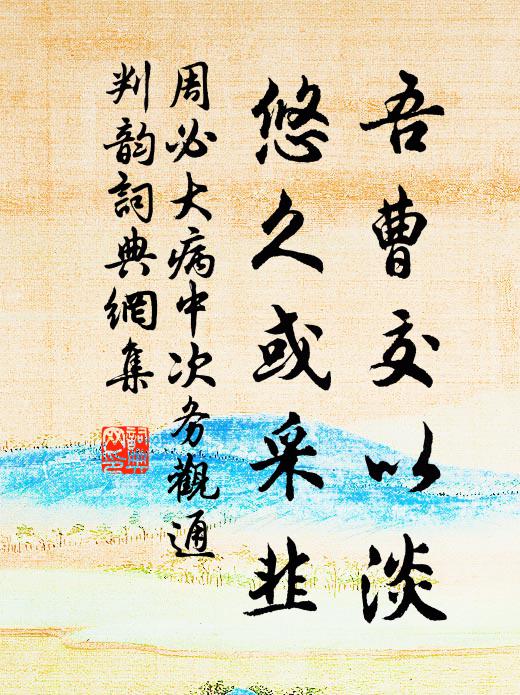 吾曹交以淡
悠久或采韭
周必大病中次务觀通
判韵詞典網集